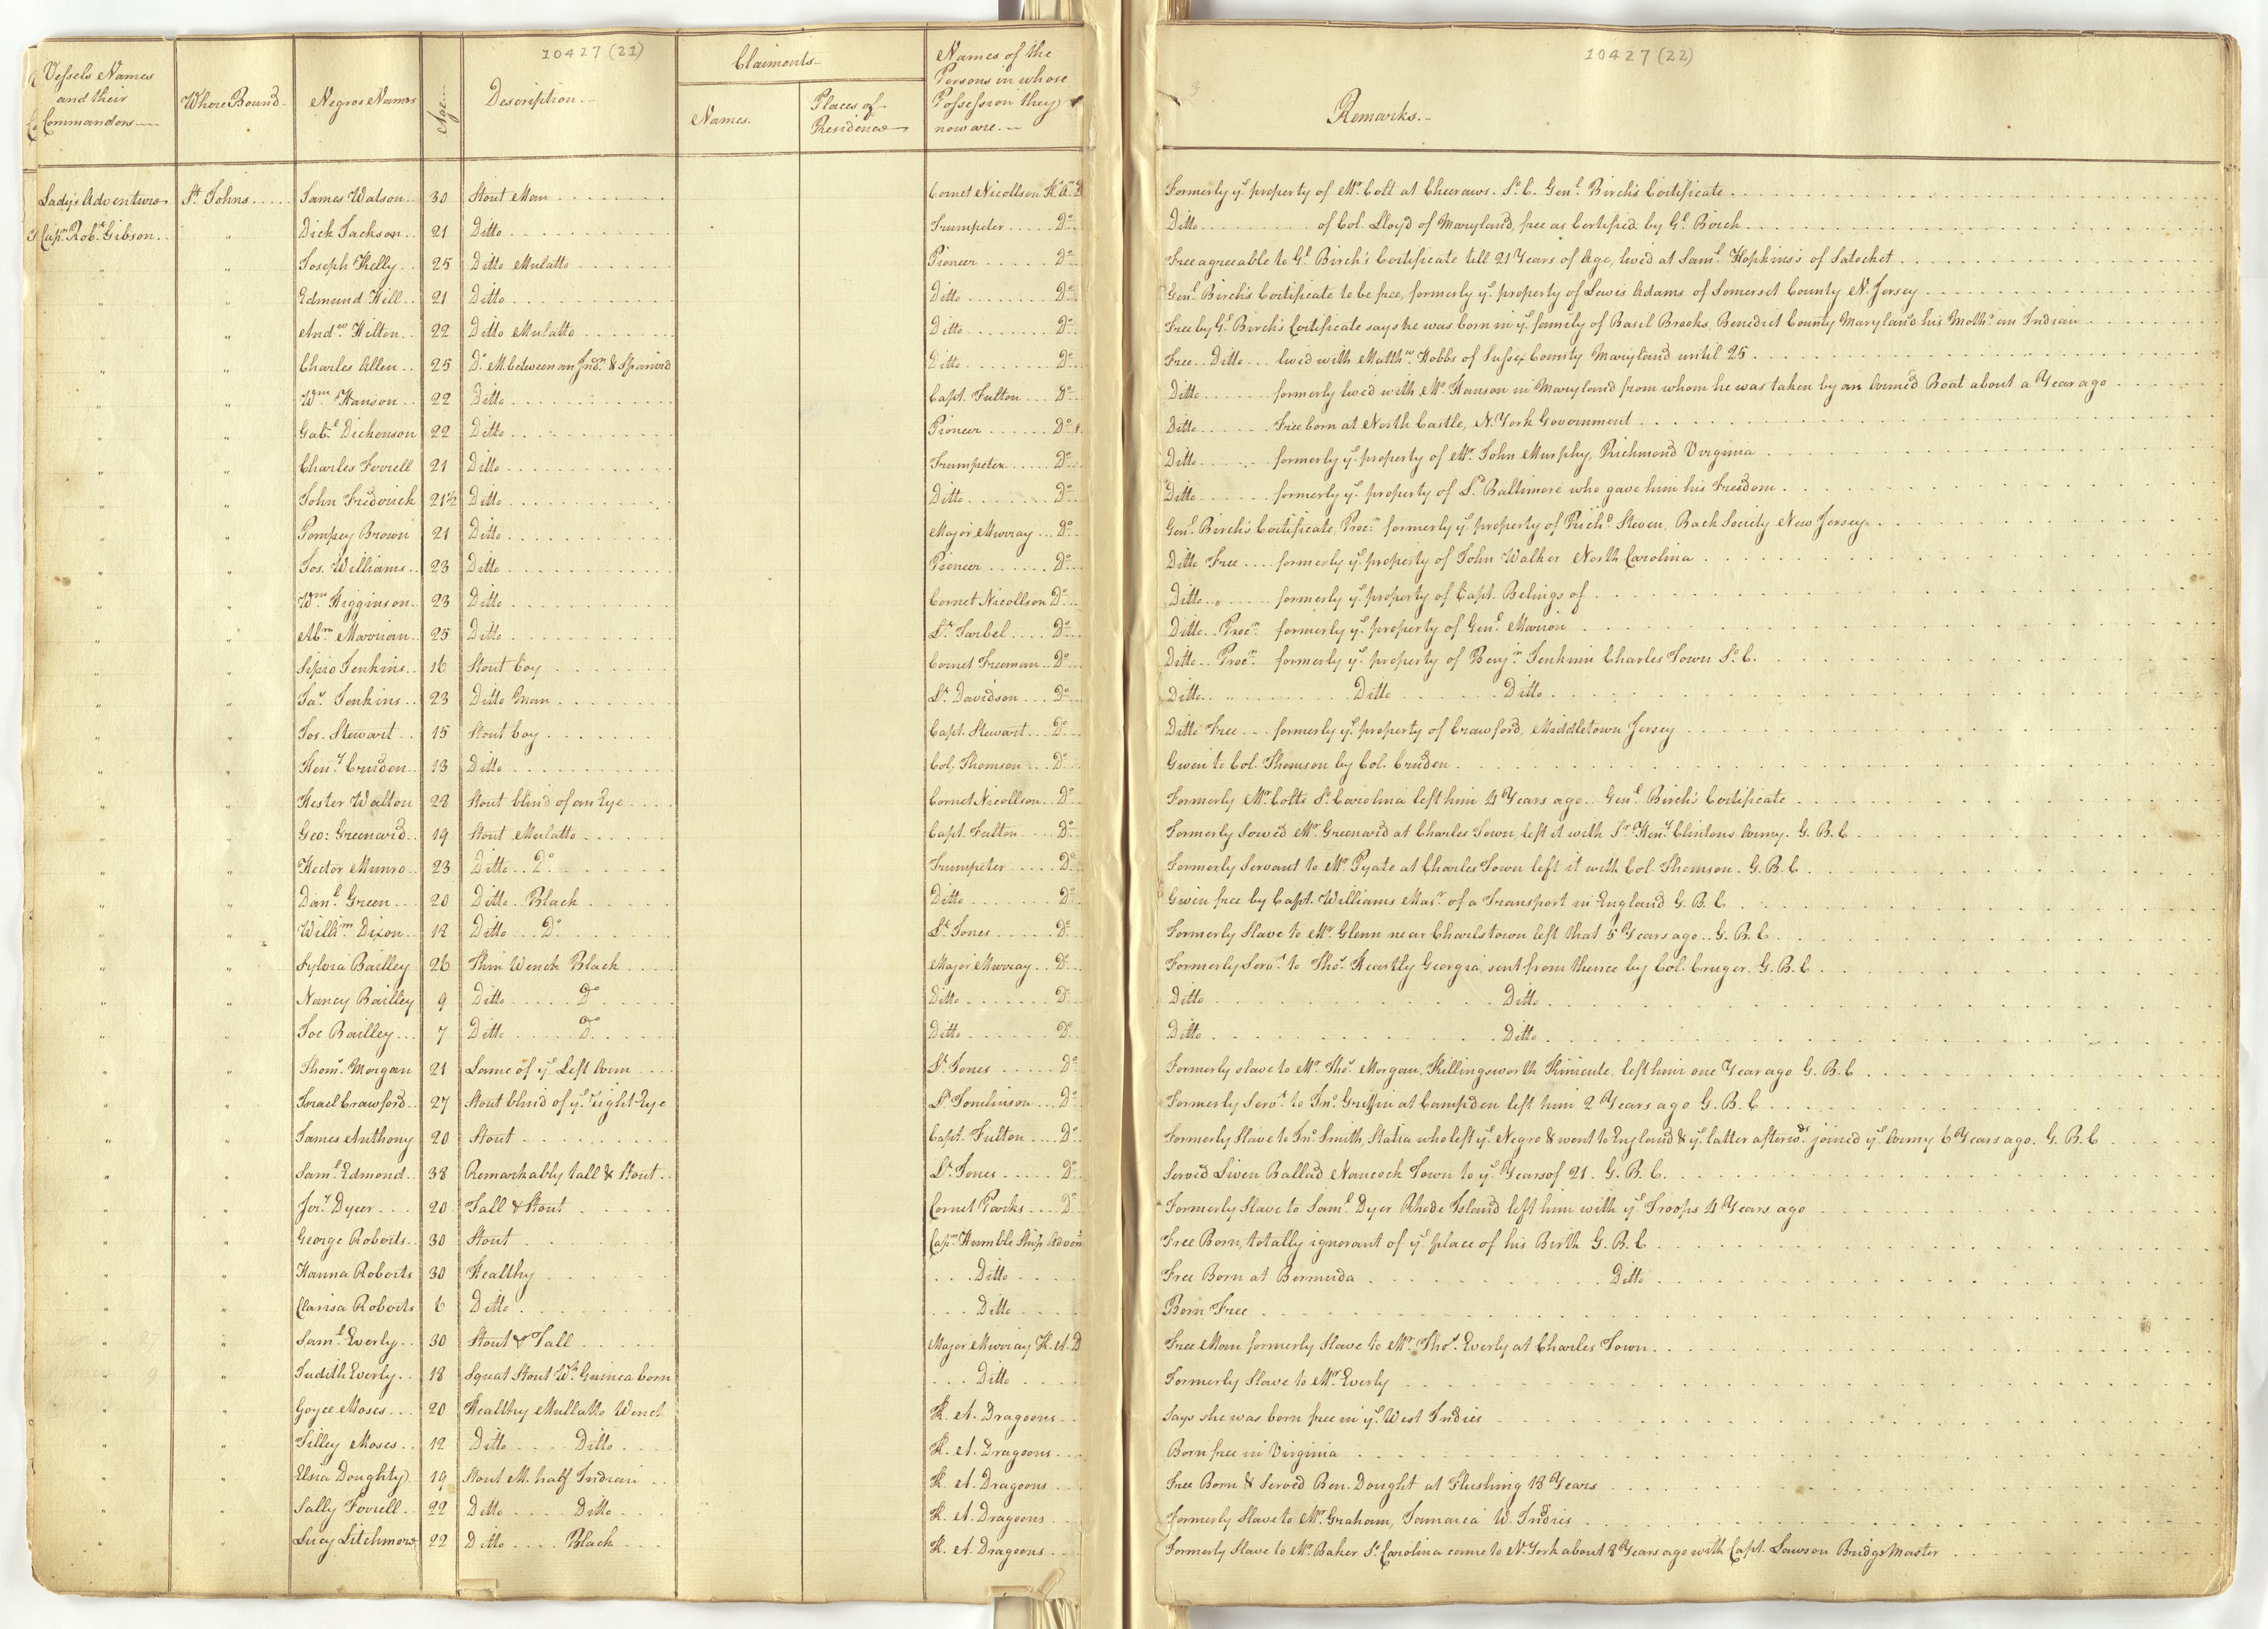 10427 (21)
Vessels Names and their Commanders
Where Bound
Negros Names
Age
Description
Claimants
Names.
Places of Residence
Names of the Persons in whose Possession they now are.
10427 (22)
Remarks.
Lady's Adventure St. Johns James Watson 30 Stout Man Cornet Nicollson K. Am. D Formerly ye. property of Mr. Colt at Cheeraws. So. C. Genl. Birch's Certificate
Capn. Robt. Gibson " Dick Jackson 21 Ditto Trumpeter Do. Ditto of Col. Lloyd of Maryland, free as Certified by Gl. Birch
" " Joseph Kelly 25 Ditto Mulatto Pioneer Do. Free agreeable to Gl. Birch's Certificate till 21 Years of Age, lived at Saml. Hopkins's of Satocket
" " Edmund Hill 21 Ditto Ditto Do. Genl. Birch's Certificate to be free, formerly ye. property of Lewis Adams of Somerset County N. Jersey
" " Andw. Hilton 22 Ditto Mulatto Ditto Do. Free by Gl. Birch's Certificate says he was born in ye. family of Basil Brooks, Benedict County Maryland his Mothr. an Indian
" " Charles Allen 25 Do. M. between an Indn. & Spaniard Ditto Do. Free Ditto lived with Matthw. Hobbs of Sussex County Maryland until 25
" " Wm. Hanson 22 Ditto Capt. Fulton Do. Ditto formerly lived with Mr. Hanson in Maryland from whom he was taken by an Armed Boat about a Year ago
" " Gabl. Dickenson 22 Ditto Pioneer Do. Ditto Free born at North Castle, N. York Government
" " Charles Forrell 21 Ditto Trumpeter Do. Ditto formerly ye. property of Mr. John Murphy, Richmond Virginia
" " John Frederick 21½ Ditto Ditto Do. Ditto formerly ye. property of Ld. Baltimore who gave him his Freedom
" " Pompey Brown 21 Ditto Major Murray Do. Genl. Birch's Certificate, Procn. formerly ye. property of Richd. Steven, Back Society New Jersey
" " Jos. Williams 23 Ditto Pioneer Do. Ditto Free formerly ye. property of John Walker North Carolina
" " Wm. Higginson 23 Ditto Cornet Nicollson Do. Ditto " formerly ye. property of Capt. Belings of
" " Abm. Marrian 25 Ditto Lt. Tarbel Do. Ditto Procn. formerly ye. property of Genl. Marion
" " Sipio Jenkins 16 Stout boy Cornet Freeman Do. Ditto Procn. formerly ye. property of Benjn. Jenkins Charles Town So. C.
" " Jas. Jenkins 23 Ditto man Lt. Davidson Do. Ditto Ditto Ditto
" " Jos. Stewart 15 Stout boy Capt. Stewart Do. Ditto Free formerly ye. property of Crawford, Middletown Jersey
" " Heny. Cruden 13 Ditto Col. Thomson Do. Given to Col. Thomson by Col. Cruden
" " Hester Walton 28 Stout blind of an Eye Cornet Nicollson Do. Formerly Mr. Colts So. Carolina left him 4 Years ago Genl. Birch's Certificate
" " Geo: Greenard 19 Stout Mulatto Capt. Fulton Do. Formerly Served Mr. Greenard at Charles Town, left it with Sr. Heny. Clintons Army. G. B. C
" " Hector Munro 23 Ditto Do. Trumpeter Do. Formerly Servant to Mr. Pyate at Charles Town left it with Col. Thomson. G. B. C
" " Danl. Green 20 Ditto Black Ditto Do. Given free by Capt. Williams Masr. of a Transport in England G. B. C
" " Willm. Dixon 12 Ditto Do. Lt. Jones Do. Formerly Slave to Mr. Glenn near Charlstown left that 5 Years ago G. B. C
" " Sylvia Bailley 26 Thin Wench Black Major Murray Do. Formerly Servt. to Thos. Heartly Georgia, sent from thence by Col. Cruger. G. B. C
" " Nancy Bailley 9 Ditto Do. Ditto Do. Ditto Ditto
" " Joe Bailley 7 Ditto Do. Ditto Do. Ditto Ditto
" " Thoms. Morgan 21 Lame of ye. Left Arm Lt. Jones Do. Formerly slave to Mr. Thos. Morgan, Killingsworth left him one Year ago G. B. C
" " Israel Crawford 27 Stout blind of ye. right Eye Lt. Tomlinson Do. Formerly Servt. to Jno. Griffin at Campden left him 2 Years ago G. B. C
" " James Anthony 20 Stout Capt. Fulton Do. Formerly Slave to Jno. Smith, Statia who left ye. Negro & went to England & ye. latter afterwds. joined ye. Army 6 Years ago. G. B. C
" " Saml. Edmond 38 Remarkably tall & Stout Lt. Jones Do. Served Liven Ballad Nancock Town to ye. Years of 21. G. B. C.
" " Jery. Dyer 20 Tall & Stout Cornet Parks Do. Formerly Slave to Saml. Dyer Rhode Island left him with ye. Troops 4 Years ago
" " George Roberts 30 Stout Capn. Humble Ship Adven Free Born, totally ignorant of ye. place of his Birth G. B. C
" " Hanna Roberts 30 Healthy Ditto Free Born at Bermuda Ditto
" " Clarisa Roberts 6 Ditto Ditto Born Free
" " Saml. Everly 30 Stout & Tall Major Murray K. A. D Free Man formerly Slave to Mr. Thos. Everly at Charles Town
" " Judith Everly 18 Squat Stout Wh. Guinea born Ditto Formerly Slave to Mr. Everly
" " Goyce Moses 20 Healthy Mullatto Wench K. A. Dragoons Says she was born free in ye. West Indies
" " Tilley Moses 12 Ditto Ditto K. A. Dragoons Born free in Virginia
" " Elsia Doughty 19 Stout M. half Indian K. A. Dragoons Free Born & Served Ben. Dought at Flushing 18 Years
" " Sally Forrell 22 Ditto Ditto K. A. Dragoons Formerly Slave to Mr. Graham, Jamaica W. Indies
" " Lucy Litchmore 22 Ditto Black K. A. Dragoons Formerly Slave to Mr. Baker So. Carolina came to N. York about 3 Years ago with Capt. Lawson Bridge Master